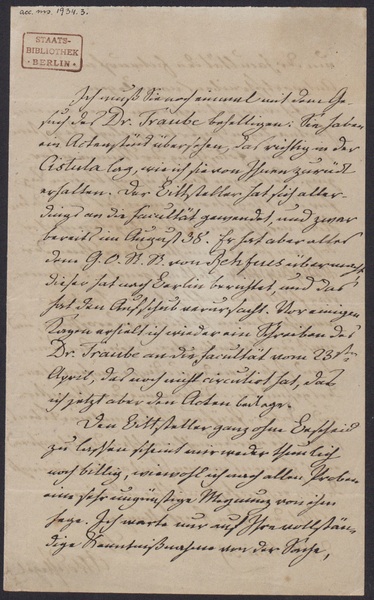 acc. ms. 1934. 3.
STAATS-
BIBLIOTHEK
BERLIN
Ich muß Sie noch einmal mit dem Ge-
such des Dr. Traube behelligen. Sie haben
ein Actenstück übersehen, das richtig in der
Cistula lag, wie ich sie von Ihnen zurück
erhalten. Der Bittsteller hat sich aller-
dings an die Facultät gewendet und zwar
bereits im August 38. Er hat aber alles
dem G.O.R.R. von Rehfues übermacht
dieser hat nach Berlin berichtet, und das
hat den Aufschub verursacht. Vor einigen
Tagen erhielt ich wieder ein Schreiben des
Dr. Traube an die Facultät vom 23sten
April, das noch nicht circulirt hat, das
ich jetzt aber den Acten beilege.
Den Bittsteller ganz ohne Bescheid
zu lassen scheint mir weder thunlich
noch billig, wiewohl ich nach allen Proben
eine sehr ungünstige Meynung von ihm
hege. Ich warte nur auf Ihre vollstän-
dige Kenntnißnahme von der Sache,